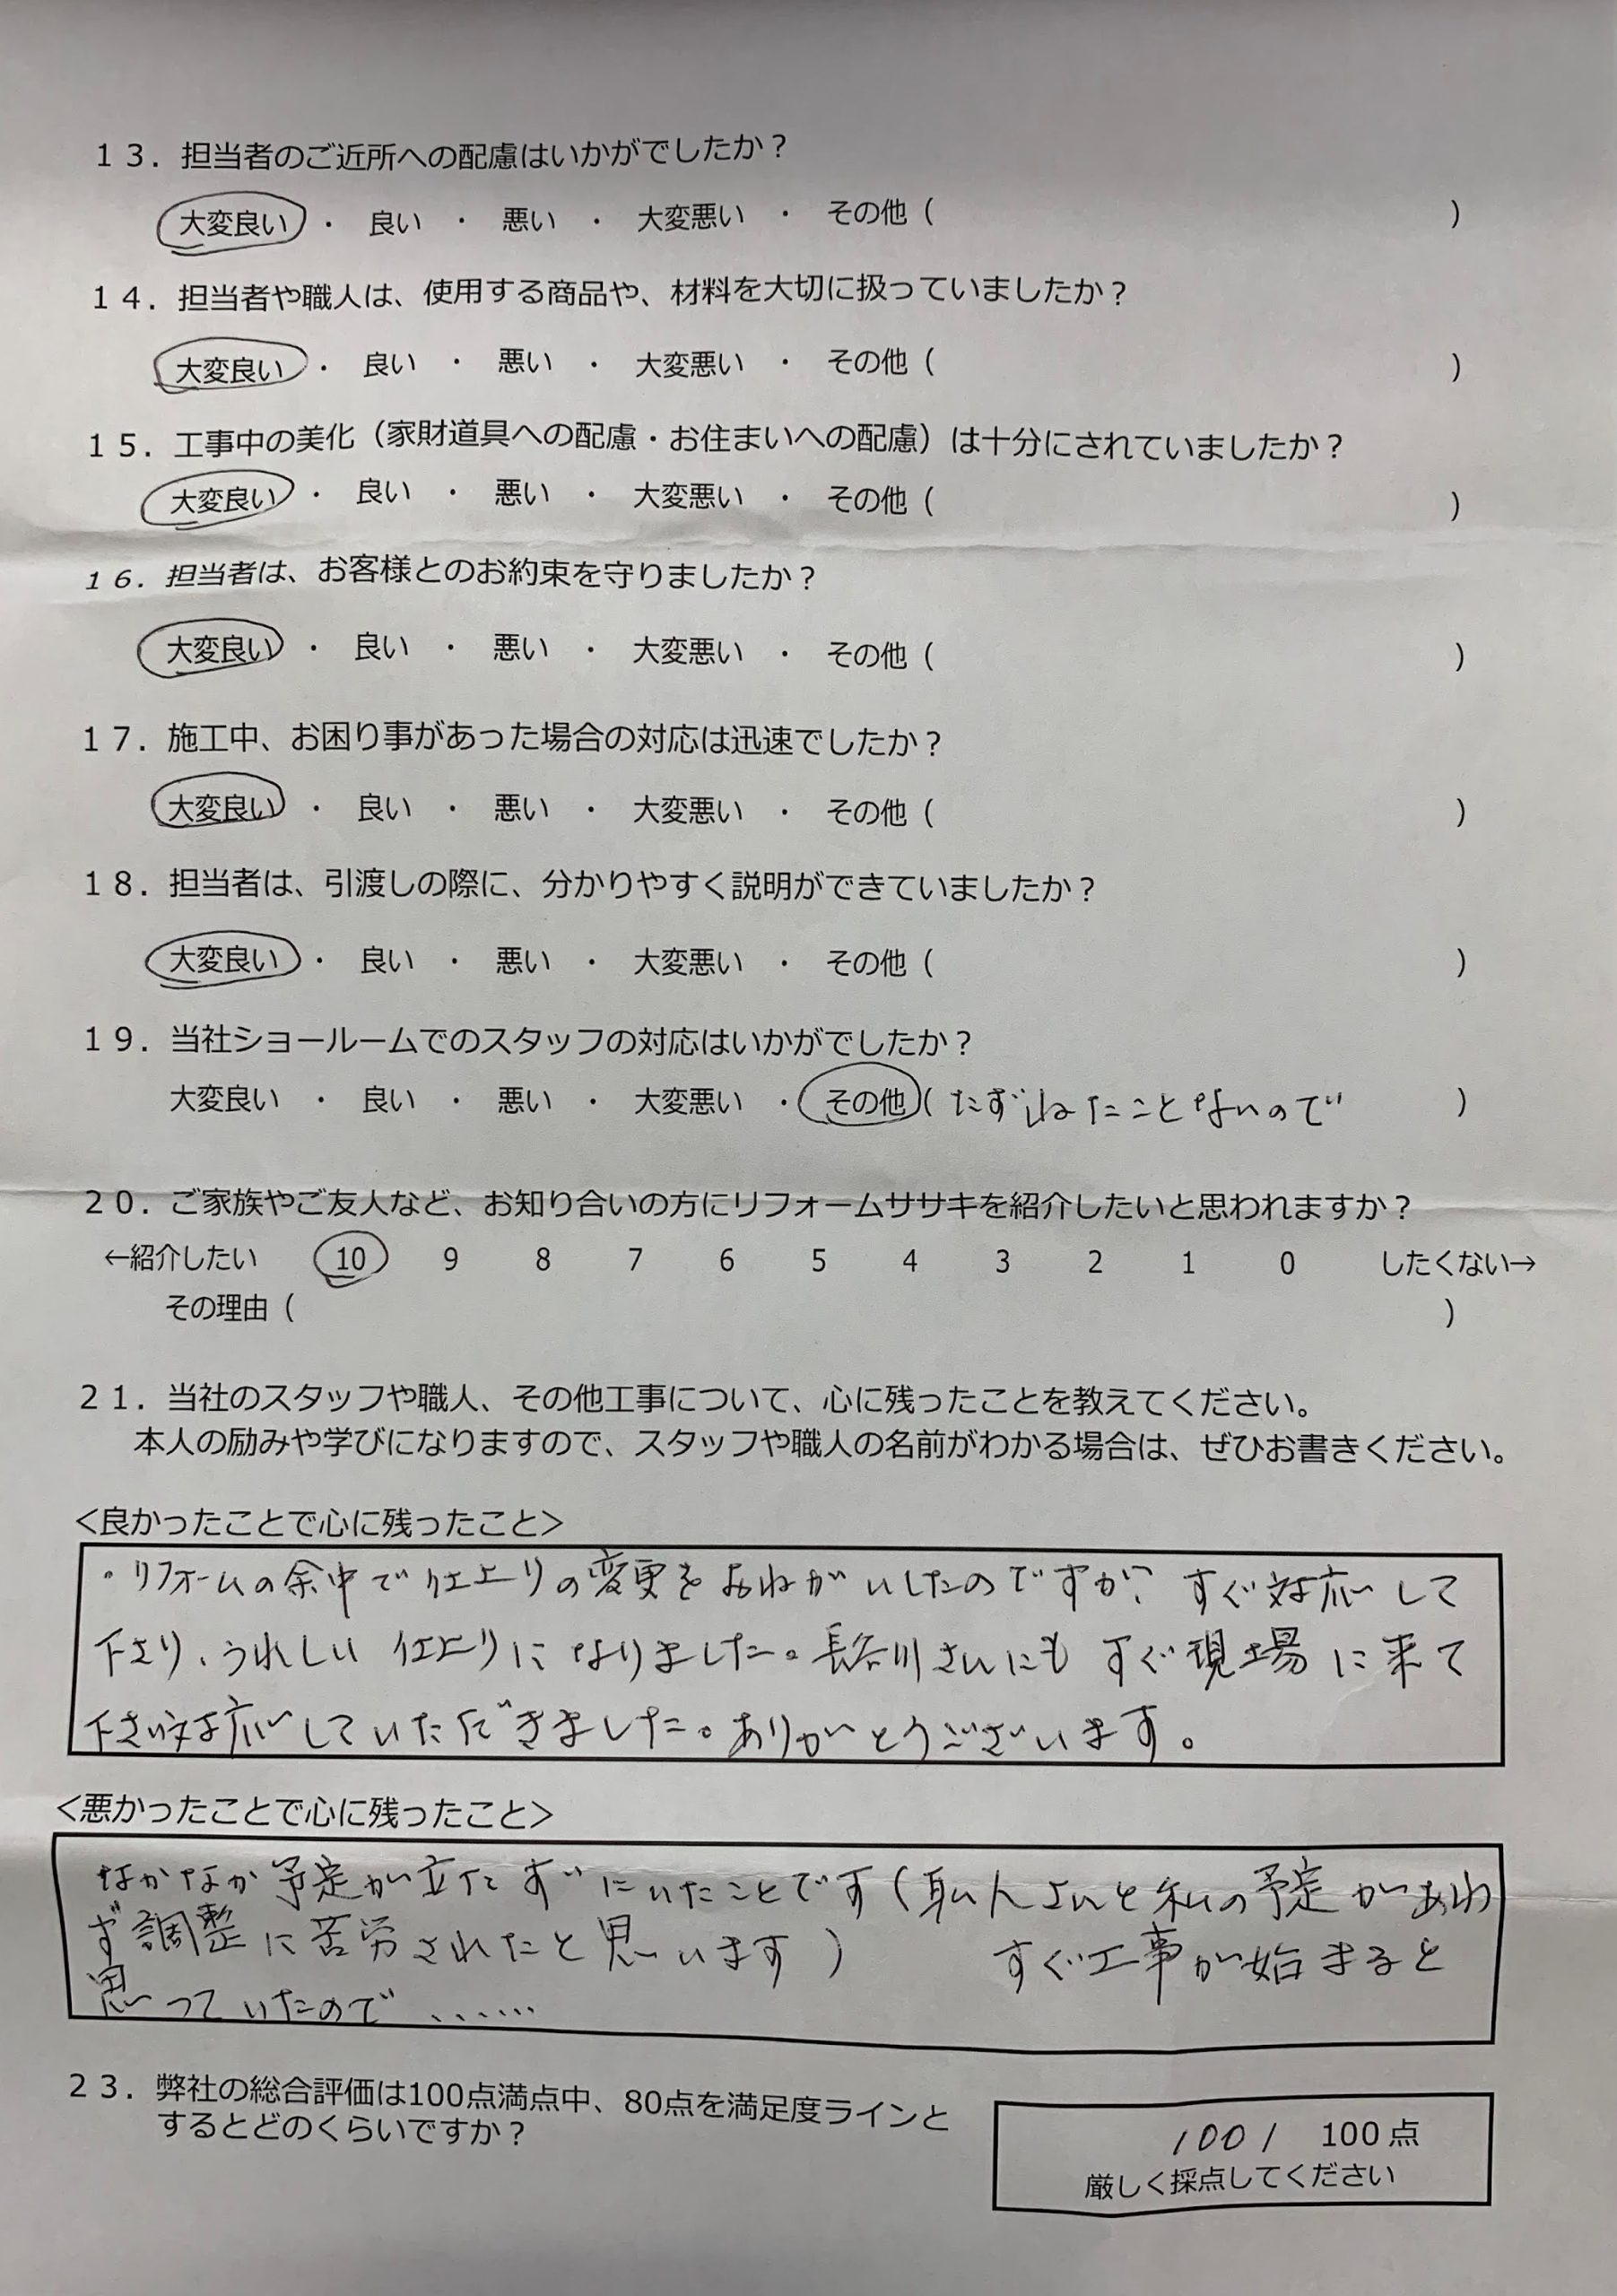 13．担当者のご近所への配慮はいかがでしたか？
大変良い ・ 良い ・ 悪い ・ 大変悪い ・ その他（ ）
14．担当者や職人は、使用する商品や、材料を大切に扱っていましたか？
大変良い ・ 良い ・ 悪い ・ 大変悪い ・ その他（ ）
15．工事中の美化（家財道具への配慮・お住まいへの配慮）は十分にされていましたか？
大変良い ・ 良い ・ 悪い ・ 大変悪い ・ その他（ ）
16．担当者は、お客様とのお約束を守りましたか？
大変良い ・ 良い ・ 悪い ・ 大変悪い ・ その他（ ）
17．施工中、お困り事があった場合の対応は迅速でしたか？
大変良い ・ 良い ・ 悪い ・ 大変悪い ・ その他（ ）
18．担当者は、引渡しの際に、分かりやすく説明ができていましたか？
大変良い ・ 良い ・ 悪い ・ 大変悪い ・ その他（ ）
19．当社ショールームでのスタッフの対応はいかがでしたか？
大変良い ・ 良い ・ 悪い ・ 大変悪い ・ その他（ たずねたことないので ）
20．ご家族やご友人など、お知り合いの方にリフォームササキを紹介したいと思われますか？
←紹介したい 10 9 8 7 6 5 4 3 2 1 0 したくない→
その理由（ ）
21．当社のスタッフや職人、その他工事について、心に残ったことを教えてください。
本人の励みや学びになりますので、スタッフや職人の名前がわかる場合は、ぜひお書きください。
＜良かったことで心に残ったこと＞
・リフォームの余中で仕上りの変更をおねがいしたのですが、すぐ対応して
下さり、うれしい 仕上りになりました。長谷川さんにも すぐ現場に来て
下さい対応していただきました。ありがとうございます。
＜悪かったことで心に残ったこと＞
なかなか予定が立たずにいたことです（職人さんと私の予定があわ
ず調整に苦労されたと思います） すぐ工事が始まると
思っていたので、、、、、、
23．弊社の総合評価は100点満点中、80点を満足度ラインと
するとどのくらいですか？
100 / 100点
厳しく採点してください